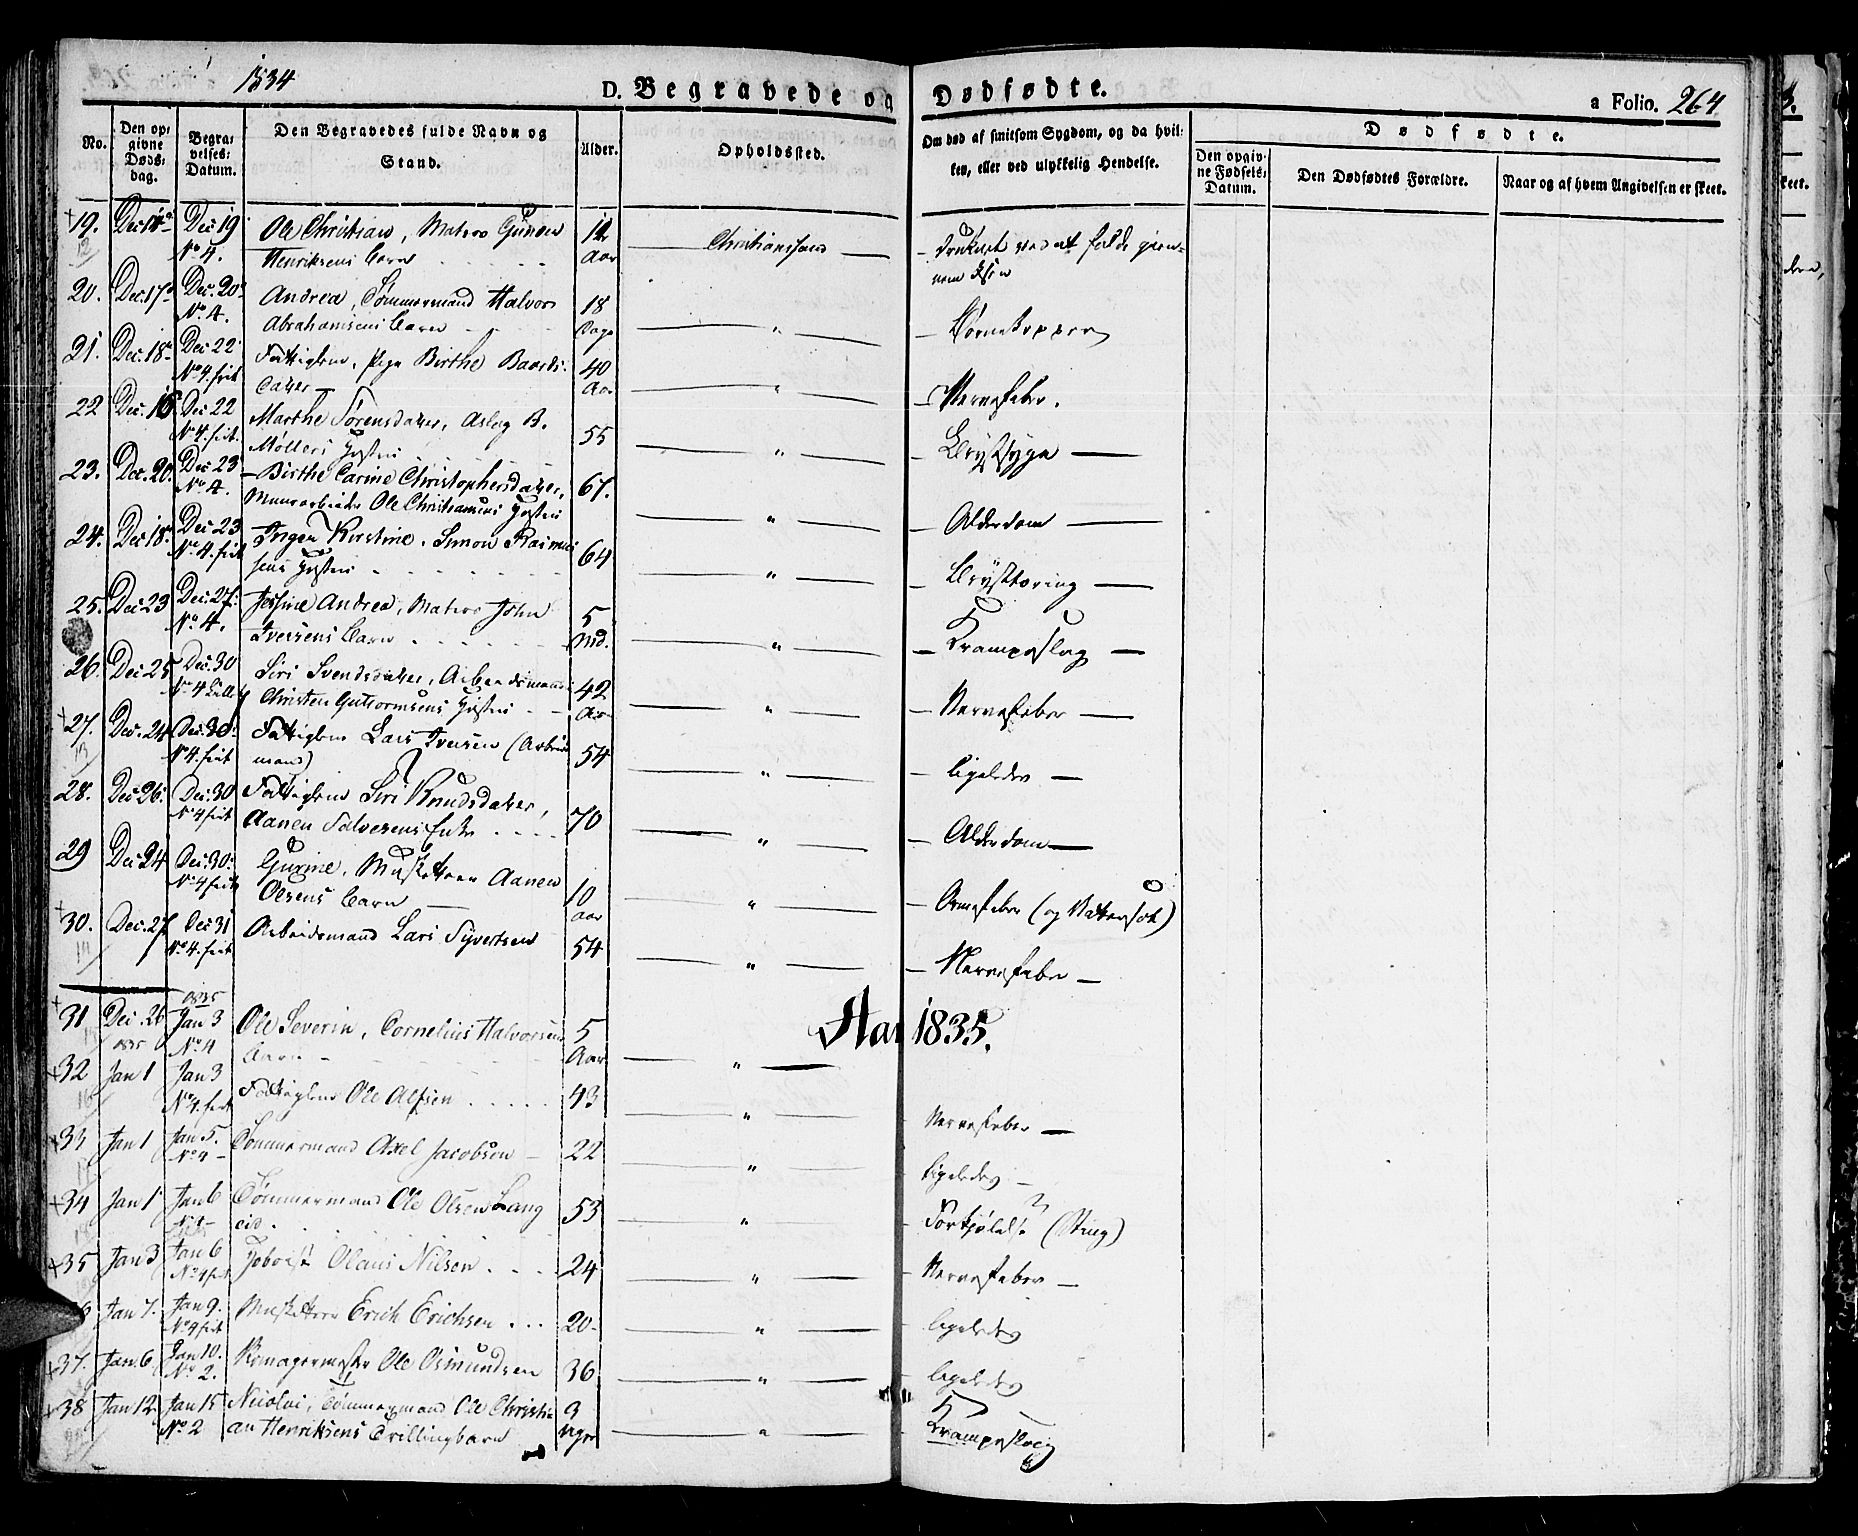 1834
D. Begravede og Dødfødte.
a Folio. 264
No.
Den opgivne Dødsdag.
Begravelses-Datum.
Den Begravedes fulde Navn og Stand.
Alder.
Opholdssted.
Om død af smitsom Sygdom, og da hvilken, eller ved ulykkelig Hendelse.
Dødfødte.
Den opgivne Fødsels-Datum.
Den Dødfødtes Forældre.
Naar og af hvem Angivelsen er skeet.
19. Dec: Dec: 19 Ole Christian, Matros Gunder Aar Christianssand Druknet ved at falde gien-
No 4. Henriksens Barn nem Isen
20. Dec. 17 Dec. 20 Andrea, Tømmermand Halvor 18 " 
No 4. Abrahamsens Barn Dage Børnekopper
21. Dec 18 Dec 22 Fattiglem, Pige Birthe Baards- 40 "
No 4. frit Datter Aar Nervefeber.
22 Dec. Dec 22 Marthe Sørensdatter, Aslag B. 55 "
No 4. frit. Møllers Hustru Brystsyge
23. Dec. 20 Dec 23 Birthe Carine Christophersdatter, 67. "
No 4. Ole Christiansens Hustru Alderdom
24. Dec 18 Dec 23 Inger Kirstine, Simon Rasmus 64 "
No 4. frit sens Hustru Brysttæring
25. Dec 23 Dec. 27. Jossine Andrea, Matros John 5 "
No 4. Iversens Barn Md. Krampeslag
26. Dec 25 Dec. 30 Siri Svendsdatter, Arbeidsmand 42 "
No 4 Christen Guttormsens Hustru Aar Nervefeber
27. Dec. 24 Dec. 30. Fattiglem Lars Iversen (Arbeids 54 "
No 4. frit mand) ligeledes
28. Dec 26. Dec. 30 Fattiglem Siri Knudsdatter, 70 "
No 4 frit Aanen Salvesens Enke Alderdom
29 Dec 24 Dec. 30. Gurine, Musketeer Aanen 10 "
No 4 frit Olsens Barn aar Ormefeber (og Vattersot)
30. Dec. 27. Dec 31 Arbeidsmand Lars Syvertsen 54 "
No 4. frit Nervefeber
Aar 1835.
1835
31 Dec. Jan 3 Ole Severin, Cornelius Halvorsens 5 "
1835 No 4 Barn Aar
32 Jan 1 Jan 3
No 4. frit Fattiglem Ole Alfsen 43 " Nervefeber
33 Jan 1 Jan 5. Tømmermand Axel Jacobsen 22 "
No 4 ligeledes
34 Jan 1 Jan 6 Tømmermand Ole Olsen Lang 53 "
eid. Forkjølelse (Sting)
35 Jan 3 Jan 6 Hoboist Olaus Nilsen 24 "
No 4 frit Nervefeber
Jan 7. Jan 9. Musketeer Erich Erichsen 20 "
No 4 frit ligeledes
37. Jan. 6 Jan 10. Skomagermester Ole Osmundsen 36 "
No 2. ligeledes
38 Jan 12 Jan 15 Nicolai, Tømmermand Ole Christi 3 "
No 2 an Henriksens Trillingbarn Uger Krampeslag